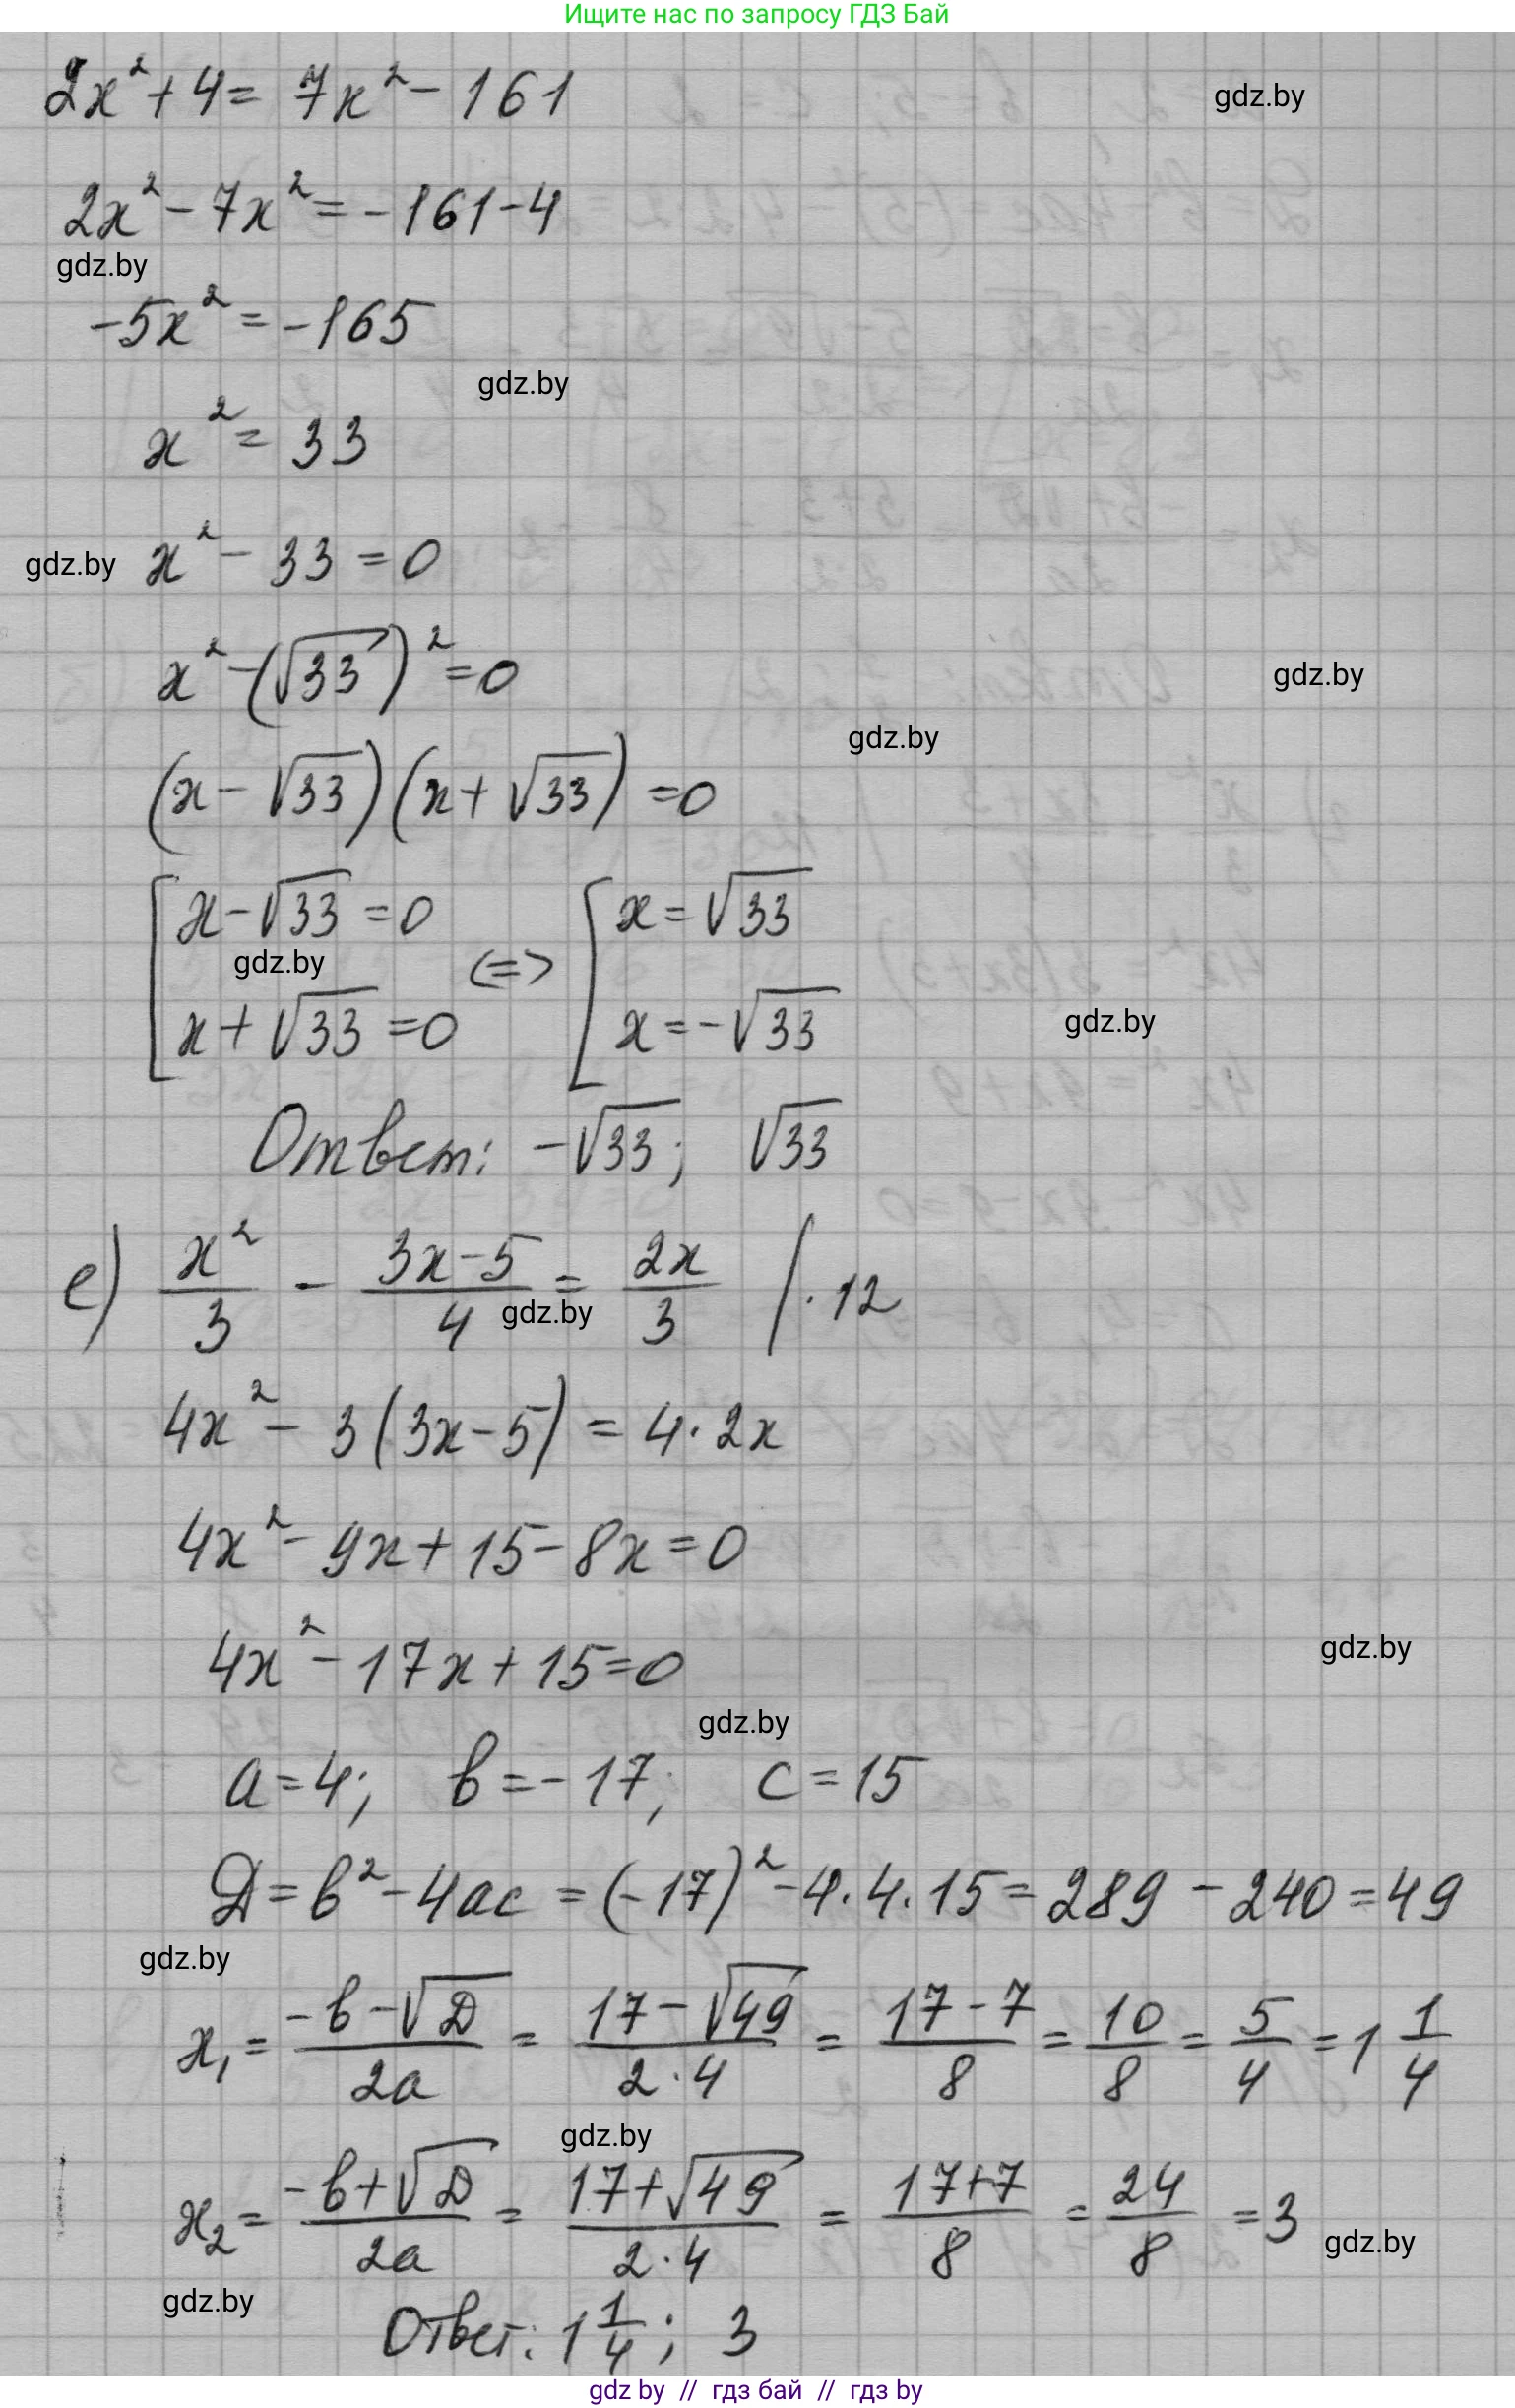 Ищите нас по запросу ГДЗ Бай
2x² + 4 = 7x² - 161
gdz.by
2x² - 7x² = -161 - 4
gdz.by
-5x² = -165
gdz.by
x² = 33
gdz.by
x² - 33 = 0
x² - (√33)² = 0
gdz.by
gdz.by
(x - √33)(x + √33) = 0
[x - √33 = 0 <=> [x = √33
gdz.by
x + √33 = 0 x = -√33
gdz.by
Ответ: -√33; √33
e) x²/3 - (3x-5)/4 = 2x/3 /·12
gdz.by
4x² - 3(3x-5) = 4·2x
4x² - 9x + 15 - 8x = 0
4x² - 17x + 15 = 0
gdz.by
gdz.by
a = 4; b = -17; c = 15
D = b² - 4ac = (-17)² - 4·4·15 = 289 - 240 = 49
gdz.by
x₁ = (-b - √D)/2a = (17 - √49)/(2·4) = (17 - 7)/8 = 10/8 = 5/4 = 1 1/4
gdz.by
x₂ = (-b + √D)/2a = (17 + √49)/(2·4) = (17+7)/8 = 24/8 = 3
gdz.by
gdz.by
Ответ: 1 1/4; 3
gdz by // гдз бай // гдз by